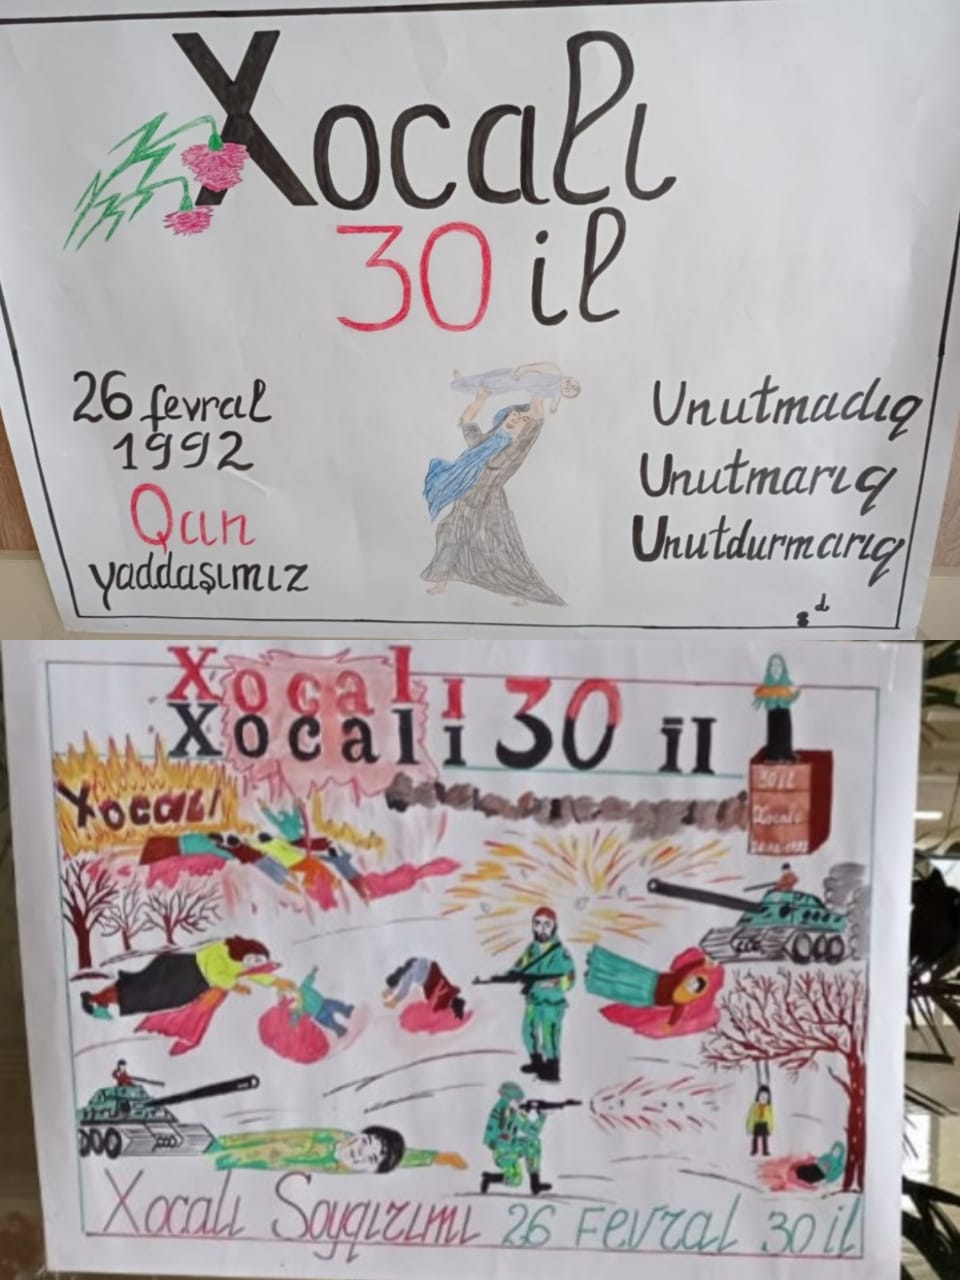 Xocalı
30 il
26 fevral
1992
Qan
yaddaşımız
Unutmadıq
Unutmarıq
Unutdurmarıq
8 d
Xocalı
Xocalı 30 il
Xocalı
30 il
Xocalı
Xocalı Soyqırımı 26 Fevral 30 il